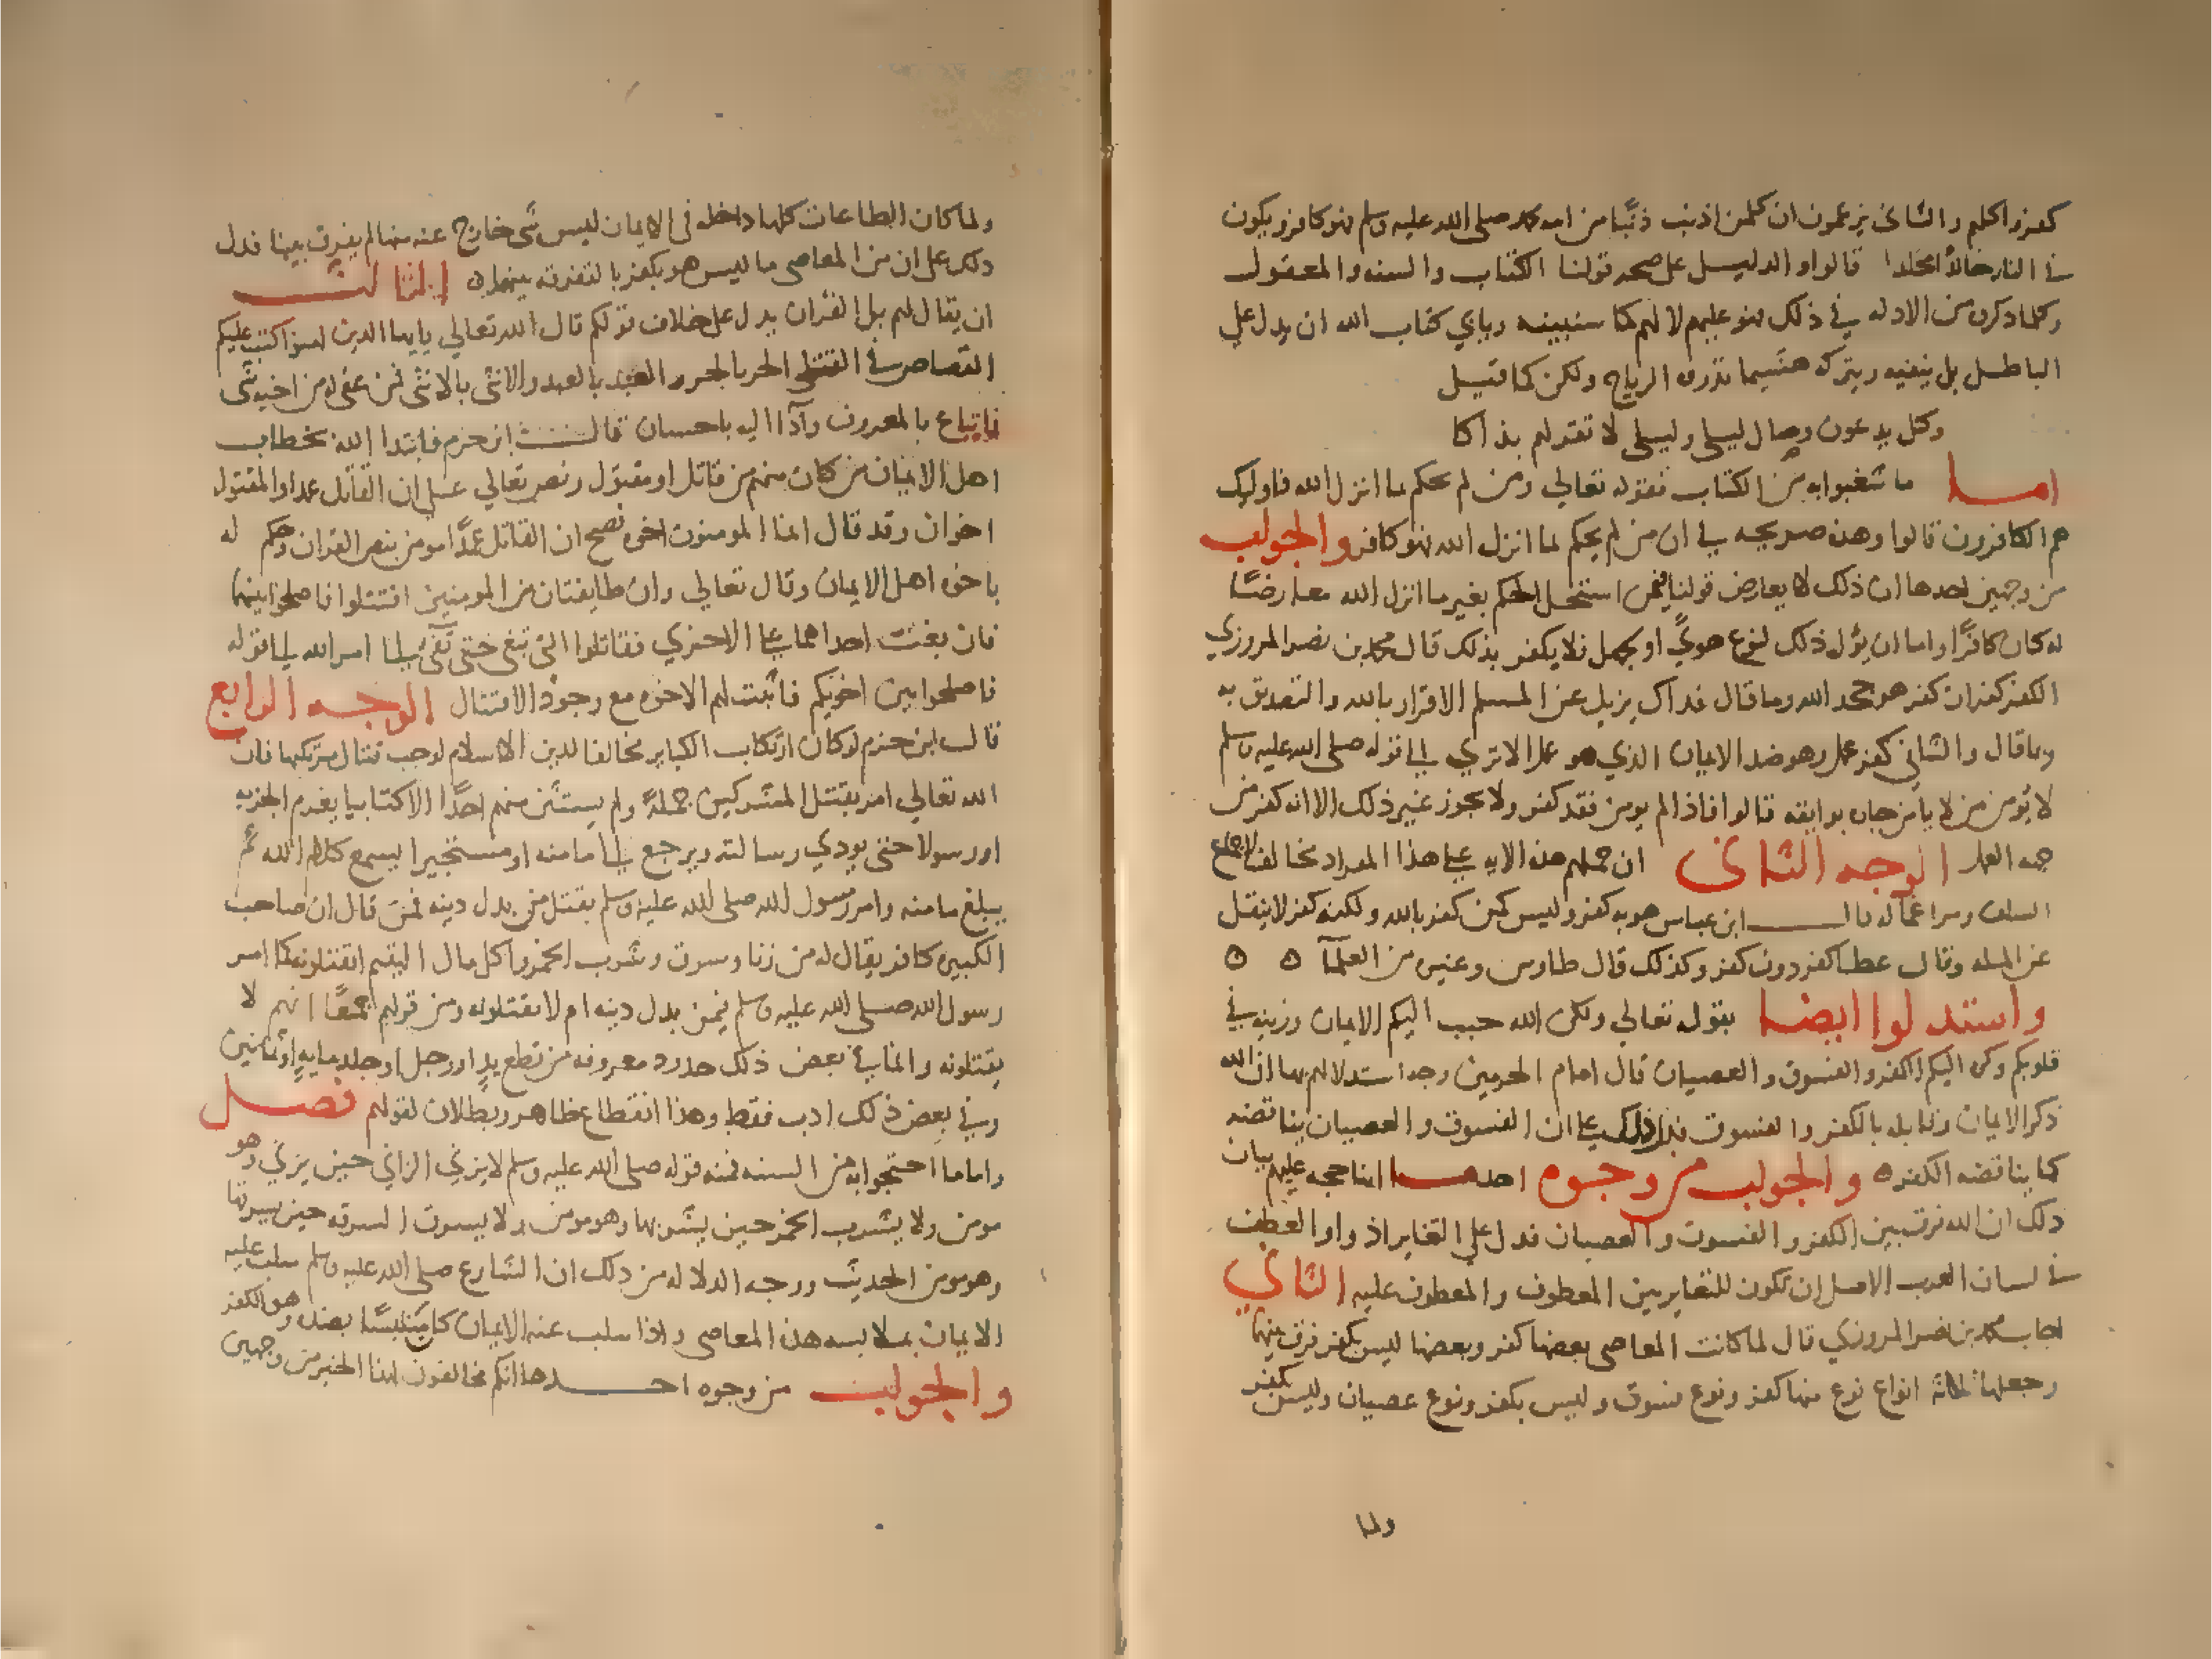 كفروا كلهم والثاني يزعمون ان كلمن اذنب ذنبًا من امه محمد صلى الله عليه وسلم فهو كافر ويكون
في النار خالدًا مخلدا قالوا والدليل على صحه قولنا الكتاب والسنه والمعقول
وكلما ذكروه من الادله في ذلك فهو عليهم لا لهم كما سنبينه وياي كتاب الله ان يدل على
الباطل بل ينفيه ويتركه هشيما تذروه الرياح ولكن كما قيل
وكل يدعون وصال ليلي وليلي لا تقر لهم بذاكا
اما ما شغبوا به من الكتاب فقوله تعالي ومن لم يحكم بما انزل الله فاوليك
هم الكافرون قالوا وهذه صريحه في ان من لم يحكم بما انزل الله فهو كافر والجواب
من وجهين احدها ان ذلك لا يعارض قولنا فيمن استحل الحكم بغير ما انزل الله معارضًا
له كان كافرًا واما ان يؤل ذلك لنوع هويً او بجهل فلا يكفر بذلك قال محمد بن نصر المروزي
الكفر كفران كفر هو جحد الله وما قال فذاك يزيل عن المسلم الاقرار بالله والتصديق به
وبما قال والثاني كفر عمل وهو ضد الايمان الذي هو عمل الا تري الي قوله صلى الله عليه وسلم
لا يؤمن من لا يامن جاره بوايقه قالوا فاذا لم يومن فقد كفر ولا يجوز غير ذلك الا انه كفر من
جهه العمل الوجه الثاني ان حملهم هذه الايه علي هذا المراد مخالف لاجماع
السلف ومراغمة له قال ابن عباس هو به كفر وليس كمن كفر بالله ولكنه كفر لا ينقل
عن المله وقال عطا كفر دون كفر وكذلك قال طاوس وغيره من العلمآ ه ه
واستدلوا ايضا بقوله تعالي ولكن الله حبب اليكم الايمان وزينه في
قلوبكم وكره اليكم الكفر والفسوق والعصيان قال امام الحرمين وجه استدلالهم بها ان الله
ذكر الايمان وقابله بالكفر والفسوق فدل ذلك علي ان الفسوق والعصيان يناقضه
كما يناقضه الكفر ه والجواب من وجوه احدها انها حجه عليهم بيان
ذلك ان الله فرق بين الكفر والفسوق والعصيان فدل علي التغاير اذ واو العطف
في لسان العرب الاصل ان تكون للتغاير بين المعطوف والمعطوف عليه الثاني
اجاب محمد بن نصر المروزي قال لما كانت المعاصي بعضها كفر وبعضها ليس بكفر فرق بينها
وجعلها ثلاثة انواع نوع منها كفر ونوع فسوق وليس بكفر ونوع عصيان وليس بكفر
ولما
ولما كان الطاعات كلها داخله في الايمان ليس شي خارج عنه منها لم يفرق بينها فدل
ذلك على ان من المعاصي ما ليس هو بكفر بالتفرقه بينها ه الثالث
ان يقال لهم بل القران يدل على خلاف قولكم قال الله تعالي يايها الذين امنوا كتب عليكم
القصاص في القتلي الحر بالحر والعبد بالعبد والانثى بالانثى فمن عفي له من اخيه شي
فاتباع بالمعروف وآداا اليه باحسان قال ابن حزم فابتدا الله بخطاب
اهل الايمان من كان منهم من قاتل او مقتول ونص تعالي علي ان القاتل عمدا والمقتول
اخوان وقد قال انما المومنون اخوه فصح ان القاتل عمدًا مومن بنص القران وحكم له
باخوه اهل الايمان وقال تعالي وان طايفتان من المومنين اقتتلوا فاصلحوا بينهما
فان بغت احداهما علي الاخري فقاتلوا التي تبغي حتى تفيء الي امر الله الي قوله
فاصلحوا بين اخويكم فاثبت لهم الاخوه مع وجود الاقتتال الوجه الرابع
قال ابن حزم لو كان ارتكاب الكباير مخالفا لدين الاسلام لوجب قتال مرتكبها فان
الله تعالي امر بقتل المشركين جملةً ولم يستثن منهم احدًا الا كتابيا يغرم الجزيه
او رسولا حتى يودي رسالته ويرجع الي مامنه او مستجيرا ليسمع كلام الله ثم
يبلغ مامنه وامر رسول الله صلى الله عليه وسلم بقتل من بدل دينه فمن قال ان صاحب
الكبيره كافر يقال له من زنا وسرق وشرب الخمر واكل مال اليتيم اتقتلونه كما امر
رسول الله صلى الله عليه وسلم فيمن بدل دينه ام لا تقتلونه ومن قولهم جمعًا انهم لا
يقتلونه وانما في بعض ذلك حدود معروفه من قطع يدٍ او رجل او جلد مايهٍ او ثمانين
وفي بعض ذلك ادب فقط وهذا انقطاع ظاهر وبطلان لقولهم فصل
واما ما احتجوا به من السنه فمنه قوله صلى الله عليه وسلم لا يزني الزاني حين يزني وهو
مومن ولا يشرب الخمر حين يشربها وهو مومن ولا يسرق السرقه حين يسرقها
وهو مومن الحديث ووجه الدلاله من ذلك ان الشارع صلى الله عليه وسلم سلب عليه
الايمان بملابسه هذه المعاصي واذا سلب عنه الايمان كان متلبسًا بضده وهو الكفر
والجواب من وجوه احدها انكم مخالفون لهذا الخبر من وجهين